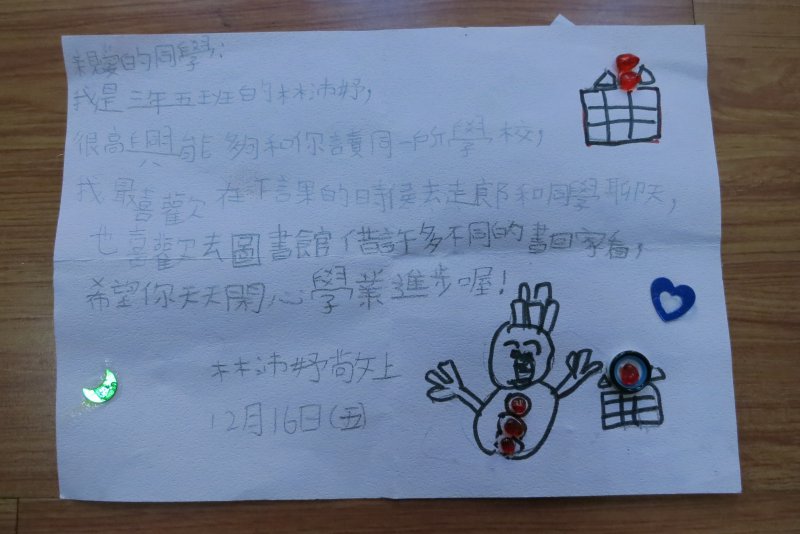 親愛的同學:
我是三年五班的林沛妤,
很高興能夠和你讀同一所學校,
我最喜歡在下課的時侯去走郎和同學聊天,
也喜歡去圖書館借許多不同的書回家看,
希望你天天開心學業進步喔!
林沛妤敬上
12月16日(五)